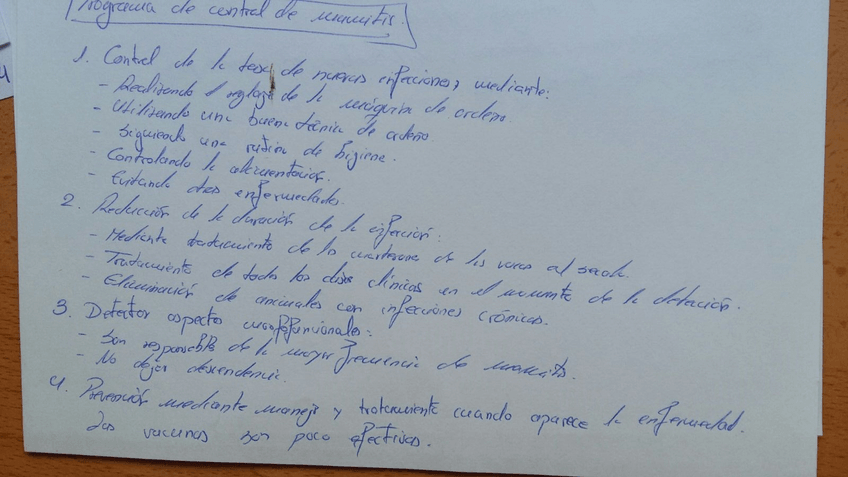 Programa de control de mamitis.
1. Control de la tasa de nuevas infecciones mediante:
- Realizando el reglaje de la máquina de ordeño.
- Utilizando una buena técnica de ordeño.
- Siguiendo una rutina de higiene.
- Controlando la alimentación.
- Evitando otras enfermedades.
2. Reducción de la duración de la infección:
- Mediante tratamiento de los cuarterones de las vacas al secado.
- Tratamiento de todos los casos clínicos en el momento de la detección.
- Eliminación de animales con infecciones crónicas.
3. Detectar aspectos morfofuncionales:
- Son responsables de la mayor frecuencia de mamitis.
- No dejar descendencia.
4. Prevención mediante manejo y tratamiento cuando aparece la enfermedad.
Las vacunas son poco efectivas.